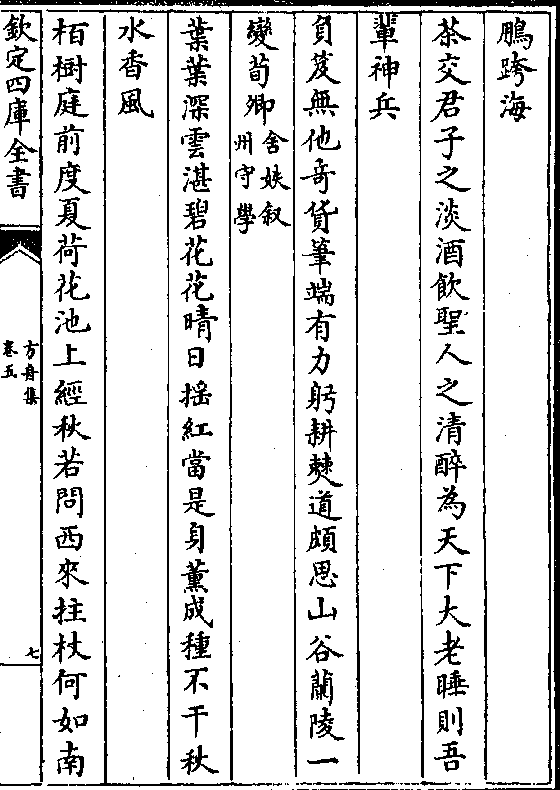 鵬跨海
茶交君子之淡酒飲聖人之清醉為天下大老睡則吾
輩神兵
負芨無他竒貨筆端有力躬耕僰道頗思山谷蘭陵一
變荀卿舍姪叙
州守學
葉葉深雲湛碧花花晴日揺紅當是身薰成種不干秋
水香風
栢樹庭前度夏荷花池上經秋若問西來拄杖何如南
欽定四庫全書
方舟集
卷五
七